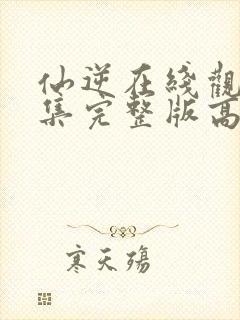 仙逆在綫觀
集完整版高
寒天殤